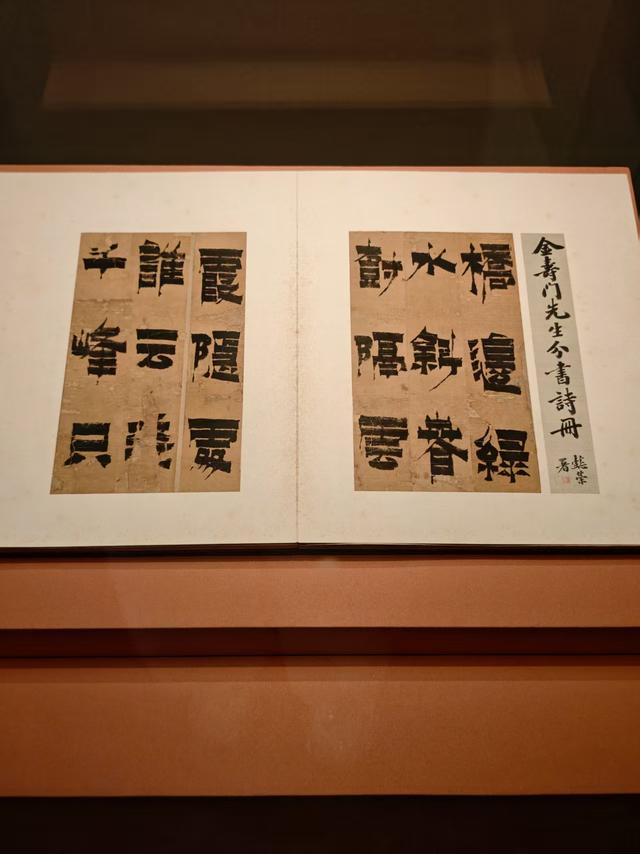 金壽門先生分書詩冊
懿榮署
橋邊綠
水斜春
隔雲
霞隱處
誰云
峰只